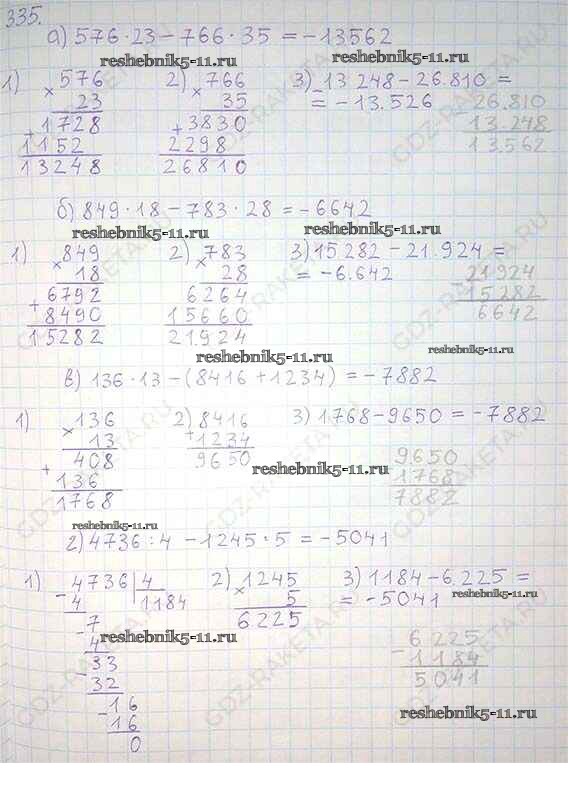 335.
а) 576·23−766·35 = −13562
reshebnik5-11.ru
1) 576 2) 766 3) 13 248−26.810 =
× 23 × 35 = −13.526 26.810
+1728 +3830 − 13.248
1152 2298 13.562
13248 26810
reshebnik5-11.ru
б) 849·18−783·28 = −6642
reshebnik5-11.ru
1) 849 2) 783 3) 15 282−21.924 =
× 18 × 28 = −6.642 − 21924
+ 6792 6264 15282
8490 15660 6642
15282 21.924
reshebnik5-11.ru
reshebnik5-11.ru
в) 136·13−(8416+1234) = −7882
1) 136 2) 8416 3) 1768−9650 = −7882
× 13 +1234
+ 408 9650 9650
136 1768
1768 7882
reshebnik5-11.ru
reshebnik5-11.ru
г) 4736:4 −1245·5 = −5041
1) −4736 4 2) 1245 3) 1184−6.225 =
4 1184 × 5 = −5041
−7 6225
4 − 6225
−33 1184
32 5041
−16
16
0
reshebnik5-11.ru
reshebnik5-11.ru
reshebnik5-11.ru
GDZ-RAKETA.RU